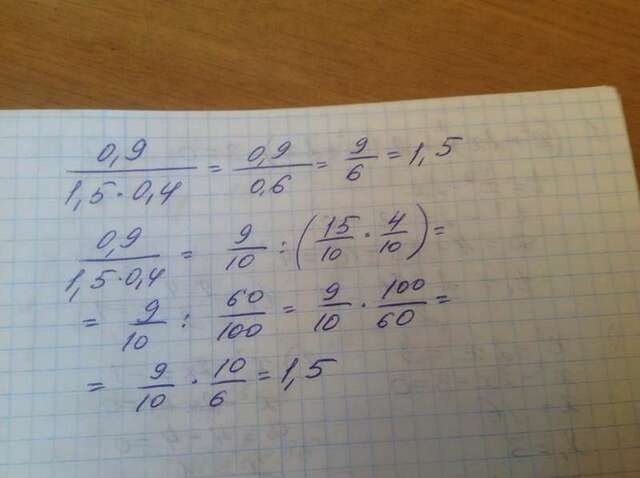 0,9/1,5·0,4 = 0,9/0,6 = 9/6 = 1,5
0,9/1,5·0,4 = 9/10 : (15/10 · 4/10) =
= 9/10 : 60/100 = 9/10 · 100/60 =
= 9/10 · 10/6 = 1,5